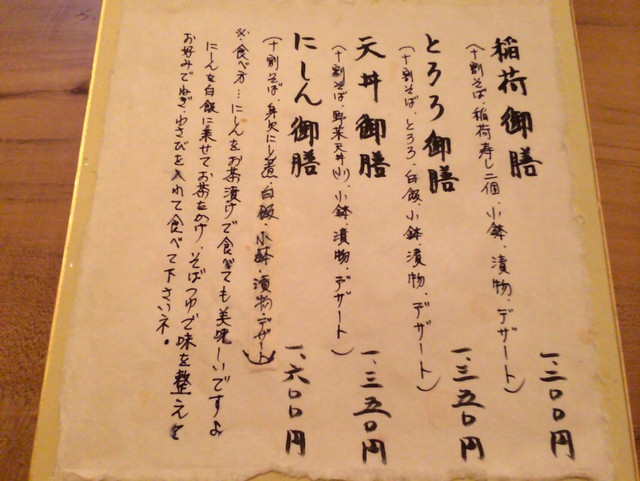 稲荷御膳 一、二〇〇円
(十割そば・稲荷寿し二個・小鉢・漬物・デザート)
とろろ御膳 一、三五〇円
(十割そば・とろろ・白飯・小鉢・漬物・デザート)
天丼御膳 一、三五〇円
(十割そば・野菜天丼(小)・小鉢・漬物・デザート)
にしん御膳 一、六〇〇円
(十割そば・身欠にし煮・白飯・小鉢・漬物・デザート)
※・食べ方…にしんをお茶漬けで食べても美味しいですよ
にしんを白飯に乗せてお茶をかけ・そばつゆで味を整えて
お好みでねぎ・わさびを入れて食べて下さいネ。